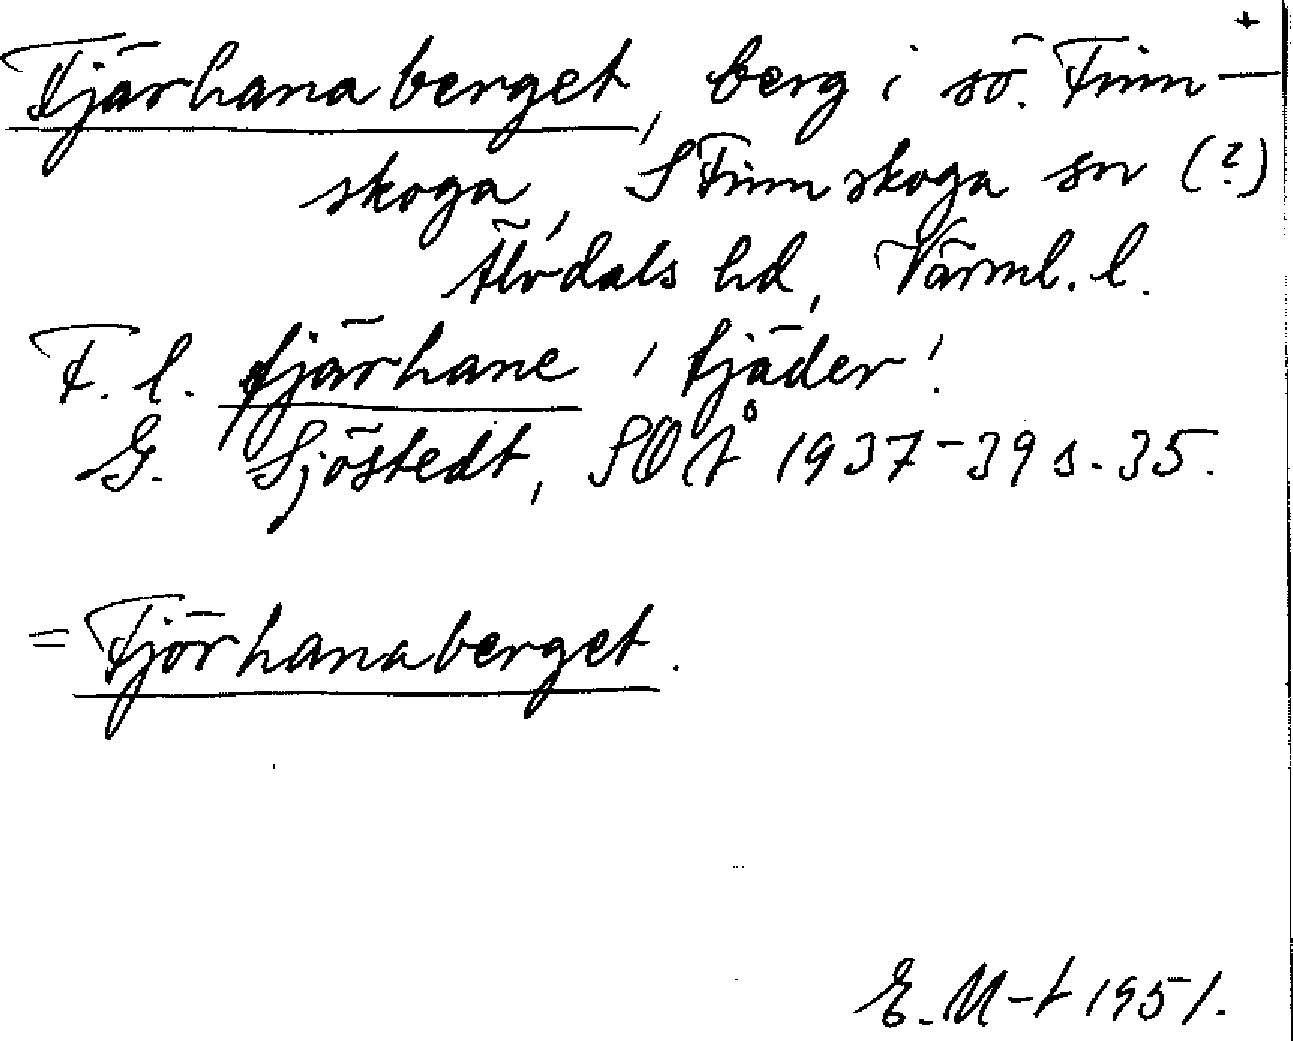 +
Tjärhanaberget, berg i sö. Finn-
skoga, S Finnskoga sn (?)
Älvdals hd, Värml. l.
F. l. tjärhane 'tjäder'.
G. Sjöstedt, SOÅ 1937-39 s. 35.
= Tjörhanaberget.
E. M-t 1951.